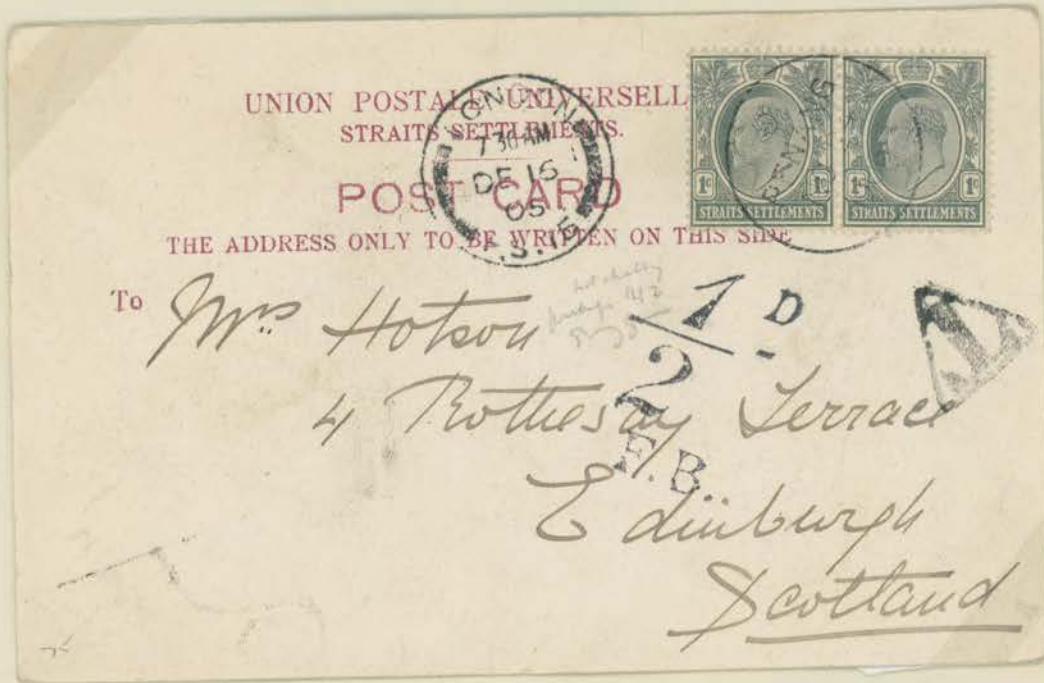 UNION POSTALE UNIVERSELL
STRAITS SETTLEMENTS.
POST CARD
THE ADDRESS ONLY TO BE WRITTEN ON THIS SIDE
LONDON
7 30 AM
DE 16
05
F.S. 
1c 1c
STRAITS SETTLEMENTS
1c 1c
STRAITS SETTLEMENTS
To Mrs Hotson
4 Rothesay Terrace
Edinburgh
Scotland
1/2 D
F.B.
T